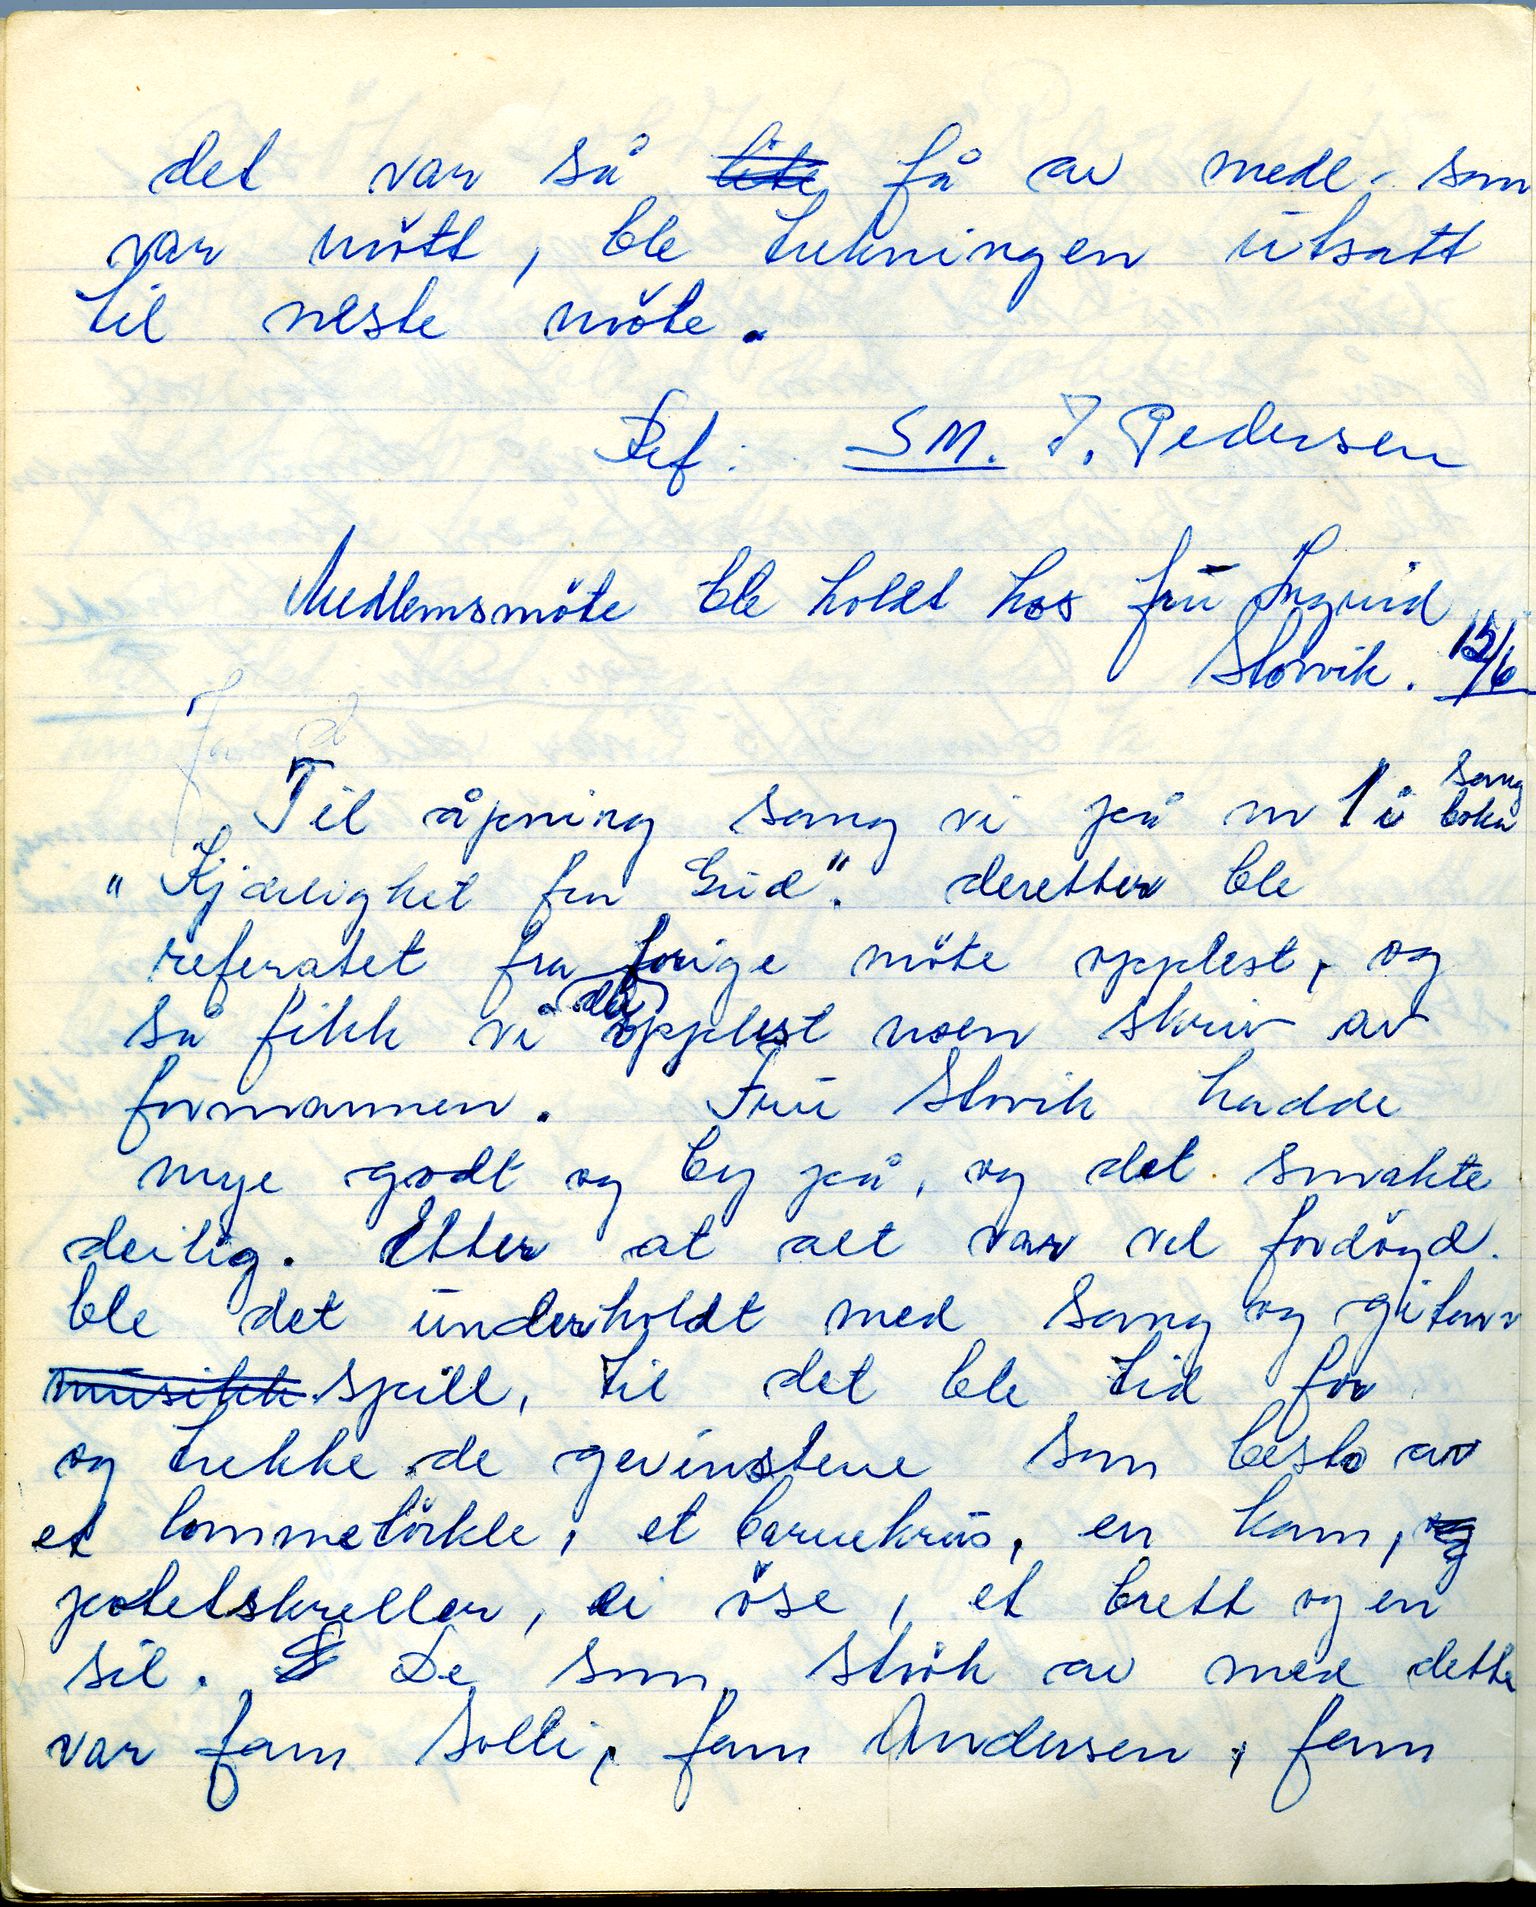 det var så lite få av medl. som
var mött, ble trekningen utsatt
til neste möte.
Ref: SM. J. Pedersen
Medlemsmöte ble holdt hos fru Ingrid
Slorvik. 15/6
Til åpning sang vi på nr 1 i sang
boka
"Kjærlighet fra Gud". deretter ble
referatet fra forige möte opplest, og
så fikk vi opplest noen skriv av
formannen. Fru Slorvik hadde
mye godt og by på, og det smakte
deilig. Etter at alt var vel fordöyd.
ble det underholdt med sang og gitarr
musikk spill, til det ble tid for
og trekke de gevinstene som besto av
et lommetörkle, et barnekrus, en kam, og
potetskreller, ei öse, et brett og en
sil. De som strök av med dette
var fam Solli, fam Andersen, fam